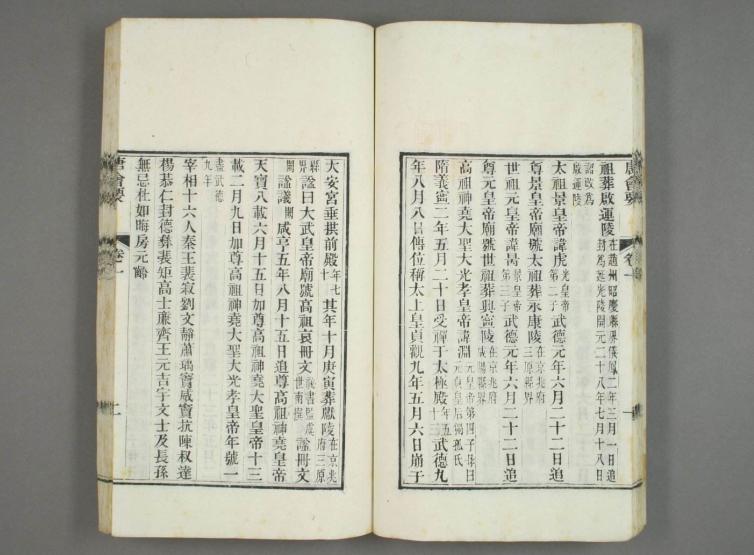 祖葬啟運陵在趙州昭慶縣界儀鳳二年三月一日追封為延光陵開元二十八年七月十八日詔改為啟運陵
太祖景皇帝諱虎光皇帝第三子武德元年六月二十二日追
尊景皇帝廟號太祖葬永康陵在京兆府三原縣界
世祖元皇帝諱昺景皇帝第三子武德元年六月二十二日追
尊元皇帝廟號世祖葬興寧陵在京兆府咸陽縣界
高祖神堯大聖大光孝皇帝諱淵元皇帝第四子母曰元貞皇后獨孤氏
隋義寧二年五月二十日受禪于太極殿年五十三武德九
年八月八日傳位稱太上皇貞觀九年五月六日崩于
唐會要
卷一
大安宮垂拱前殿年七十其年十月庚寅葬獻陵在京兆府三原
縣界諡曰大武皇帝廟號高祖哀冊文祕書監虞世南撰諡冊文
闕諡議闕咸亨五年八月十五日追尊高祖神堯皇帝
天寶八載六月十五日加尊高祖神堯大聖皇帝十三
載二月九日加尊高祖神堯大聖大光孝皇帝年號一
武德盡九年
宰相十六人秦王裴寂劉文靜蕭瑀竇威竇抗陳叔達
楊恭仁封德彝裴矩高士廉齊王元吉宇文士及長孫
無忌杜如晦房元齡
唐會要
卷一